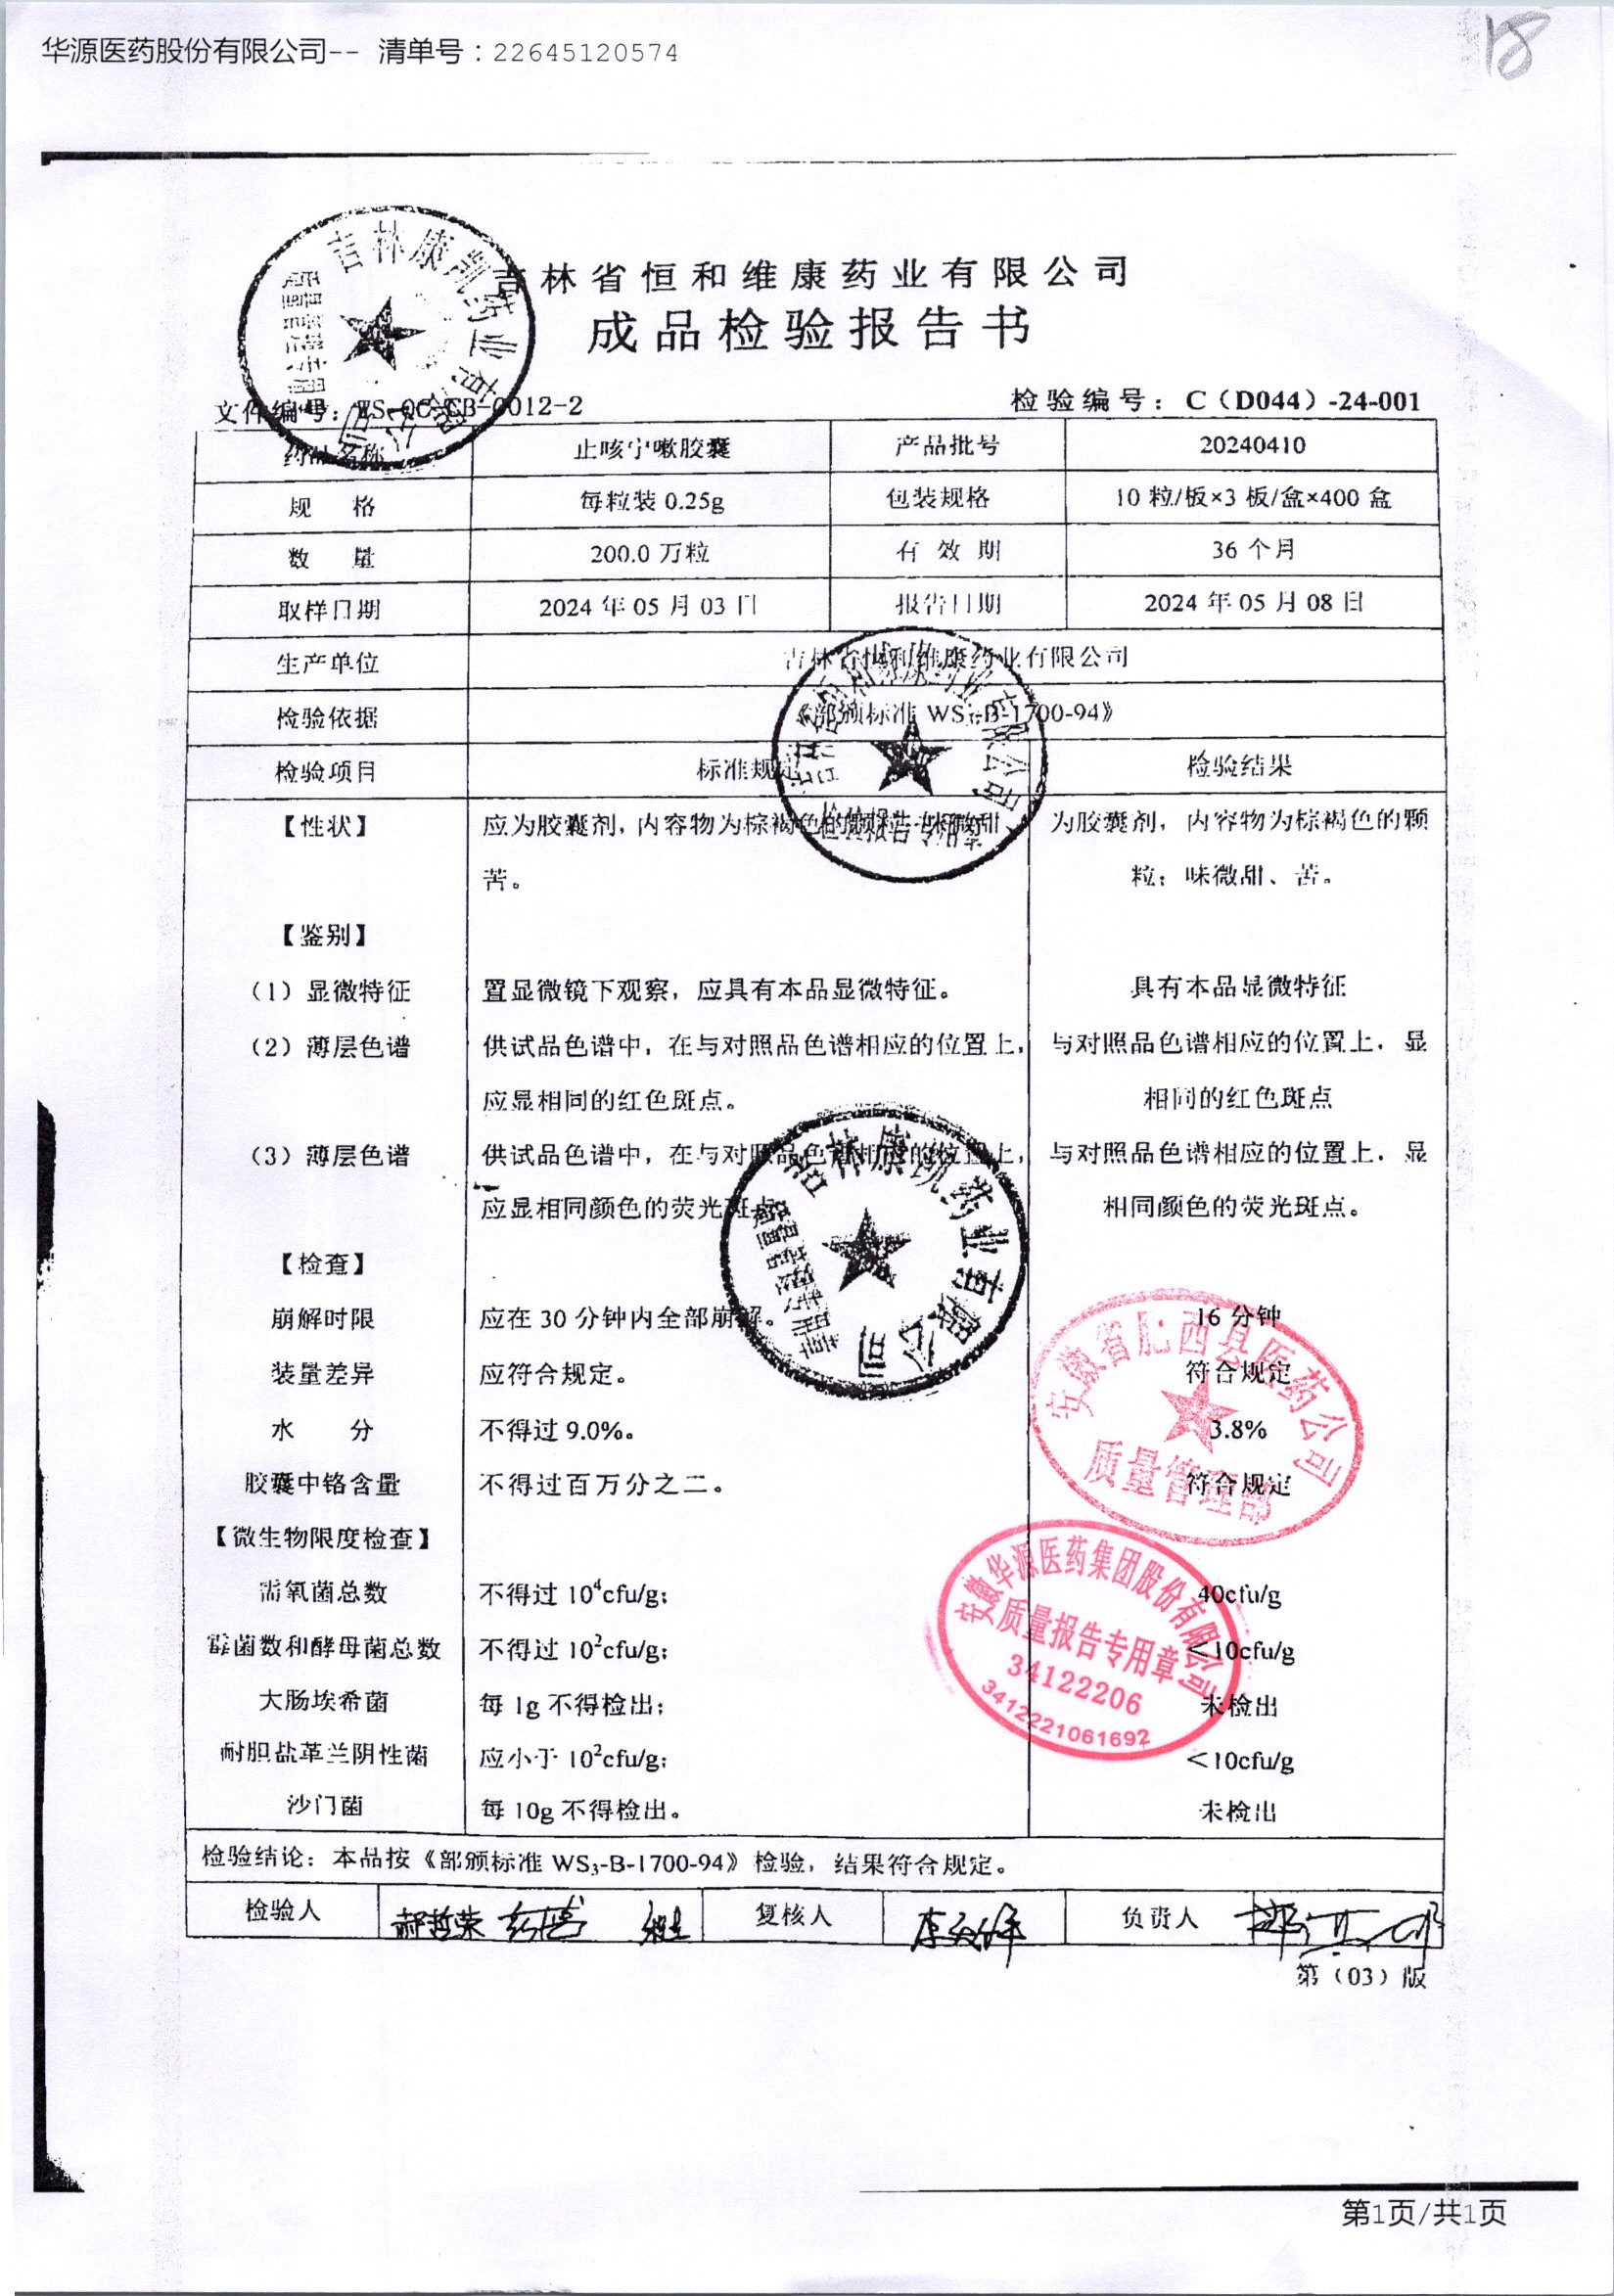 华源医药股份有限公司-- 清单号：22645120574
18
吉林省恒和维康药业有限公司
成品检验报告书
文件编号：ZS-QC-CB-0012-2 检验编号：C（D044）-24-001
药品名称 止咳宁嗽胶囊 产品批号 20240410
规 格 每粒装 0.25g 包装规格 10 粒/板×3 板/盒×400 盒
数 量 200.0 万粒 有 效 期 36 个月
取样日期 2024 年 05 月 03 日 报告日期 2024 年 05 月 08 日
生产单位 吉林省恒和维康药业有限公司
检验依据 《部颁标准 WS₃-B-1700-94》
检验项目 标准规定 检验结果
【性状】 应为胶囊剂，内容物为棕褐色的颗粒；味微甜、 为胶囊剂，内容物为棕褐色的颗
苦。 粒；味微甜、苦。
【鉴别】
（1）显微特征 置显微镜下观察，应具有本品显微特征。 具有本品显微特征
（2）薄层色谱 供试品色谱中，在与对照品色谱相应的位置上， 与对照品色谱相应的位置上，显
应显相同的红色斑点。 相同的红色斑点
（3）薄层色谱 供试品色谱中，在与对照品色谱相应的位置上， 与对照品色谱相应的位置上，显
应显相同颜色的荧光斑点 相同颜色的荧光斑点。
【检查】
崩解时限 应在 30 分钟内全部崩解。 16 分钟
装量差异 应符合规定。 符合规定
水 分 不得过 9.0%。 3.8%
胶囊中铬含量 不得过百万分之二。 符合规定
【微生物限度检查】
需氧菌总数 不得过 10⁴cfu/g; 40cfu/g
霉菌数和酵母菌总数 不得过 10²cfu/g; ＜10cfu/g
大肠埃希菌 每 1g 不得检出; 未检出
耐胆盐革兰阴性菌 应小于 10²cfu/g; ＜10cfu/g
沙门菌 每 10g 不得检出。 未检出
检验结论：本品按《部颁标准 WS₃-B-1700-94》检验，结果符合规定。
检验人 郝哲荣 复核人 负责人
第（03）版
吉林康凯药业有限公司
质量管理专用章
吉林省恒和维康药业有限公司
检验报告专用章
吉林康凯药业有限公司
质量管理专用章
安徽省肥西县医药公司
质量管理部
安徽华源医药集团股份有限公司
质量报告专用章
34122206
3412221061692
第1页/共1页